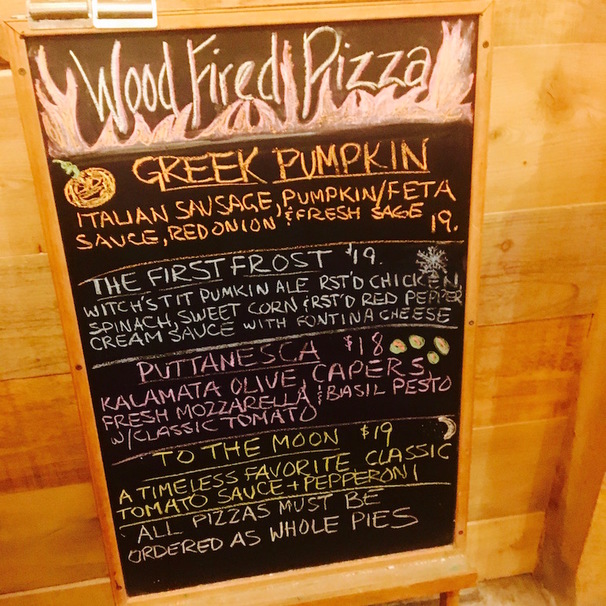 Wood Fired Pizza
GREEK PUMPKIN
ITALIAN SAUSAGE, PUMPKIN/FETA
SAUCE, RED ONION & FRESH SAGE 19.
THE FIRST FROST $19.
WITCH'S TIT PUMKIN ALE RST'D CHICKEN,
SPINACH, SWEET CORN & RST'D RED PEPPER
CREAM SAUCE WITH FONTINA CHEESE
PUTTANESCA $18
KALAMATA OLIVE, CAPERS,
FRESH MOZZARELLA & BASIL PESTO
W/CLASSIC TOMATO
TO THE MOON $19
A TIMELESS FAVORITE CLASSIC
TOMATO SAUCE + PEPPERONI
ALL PIZZAS MUST BE
ORDERED AS WHOLE PIES